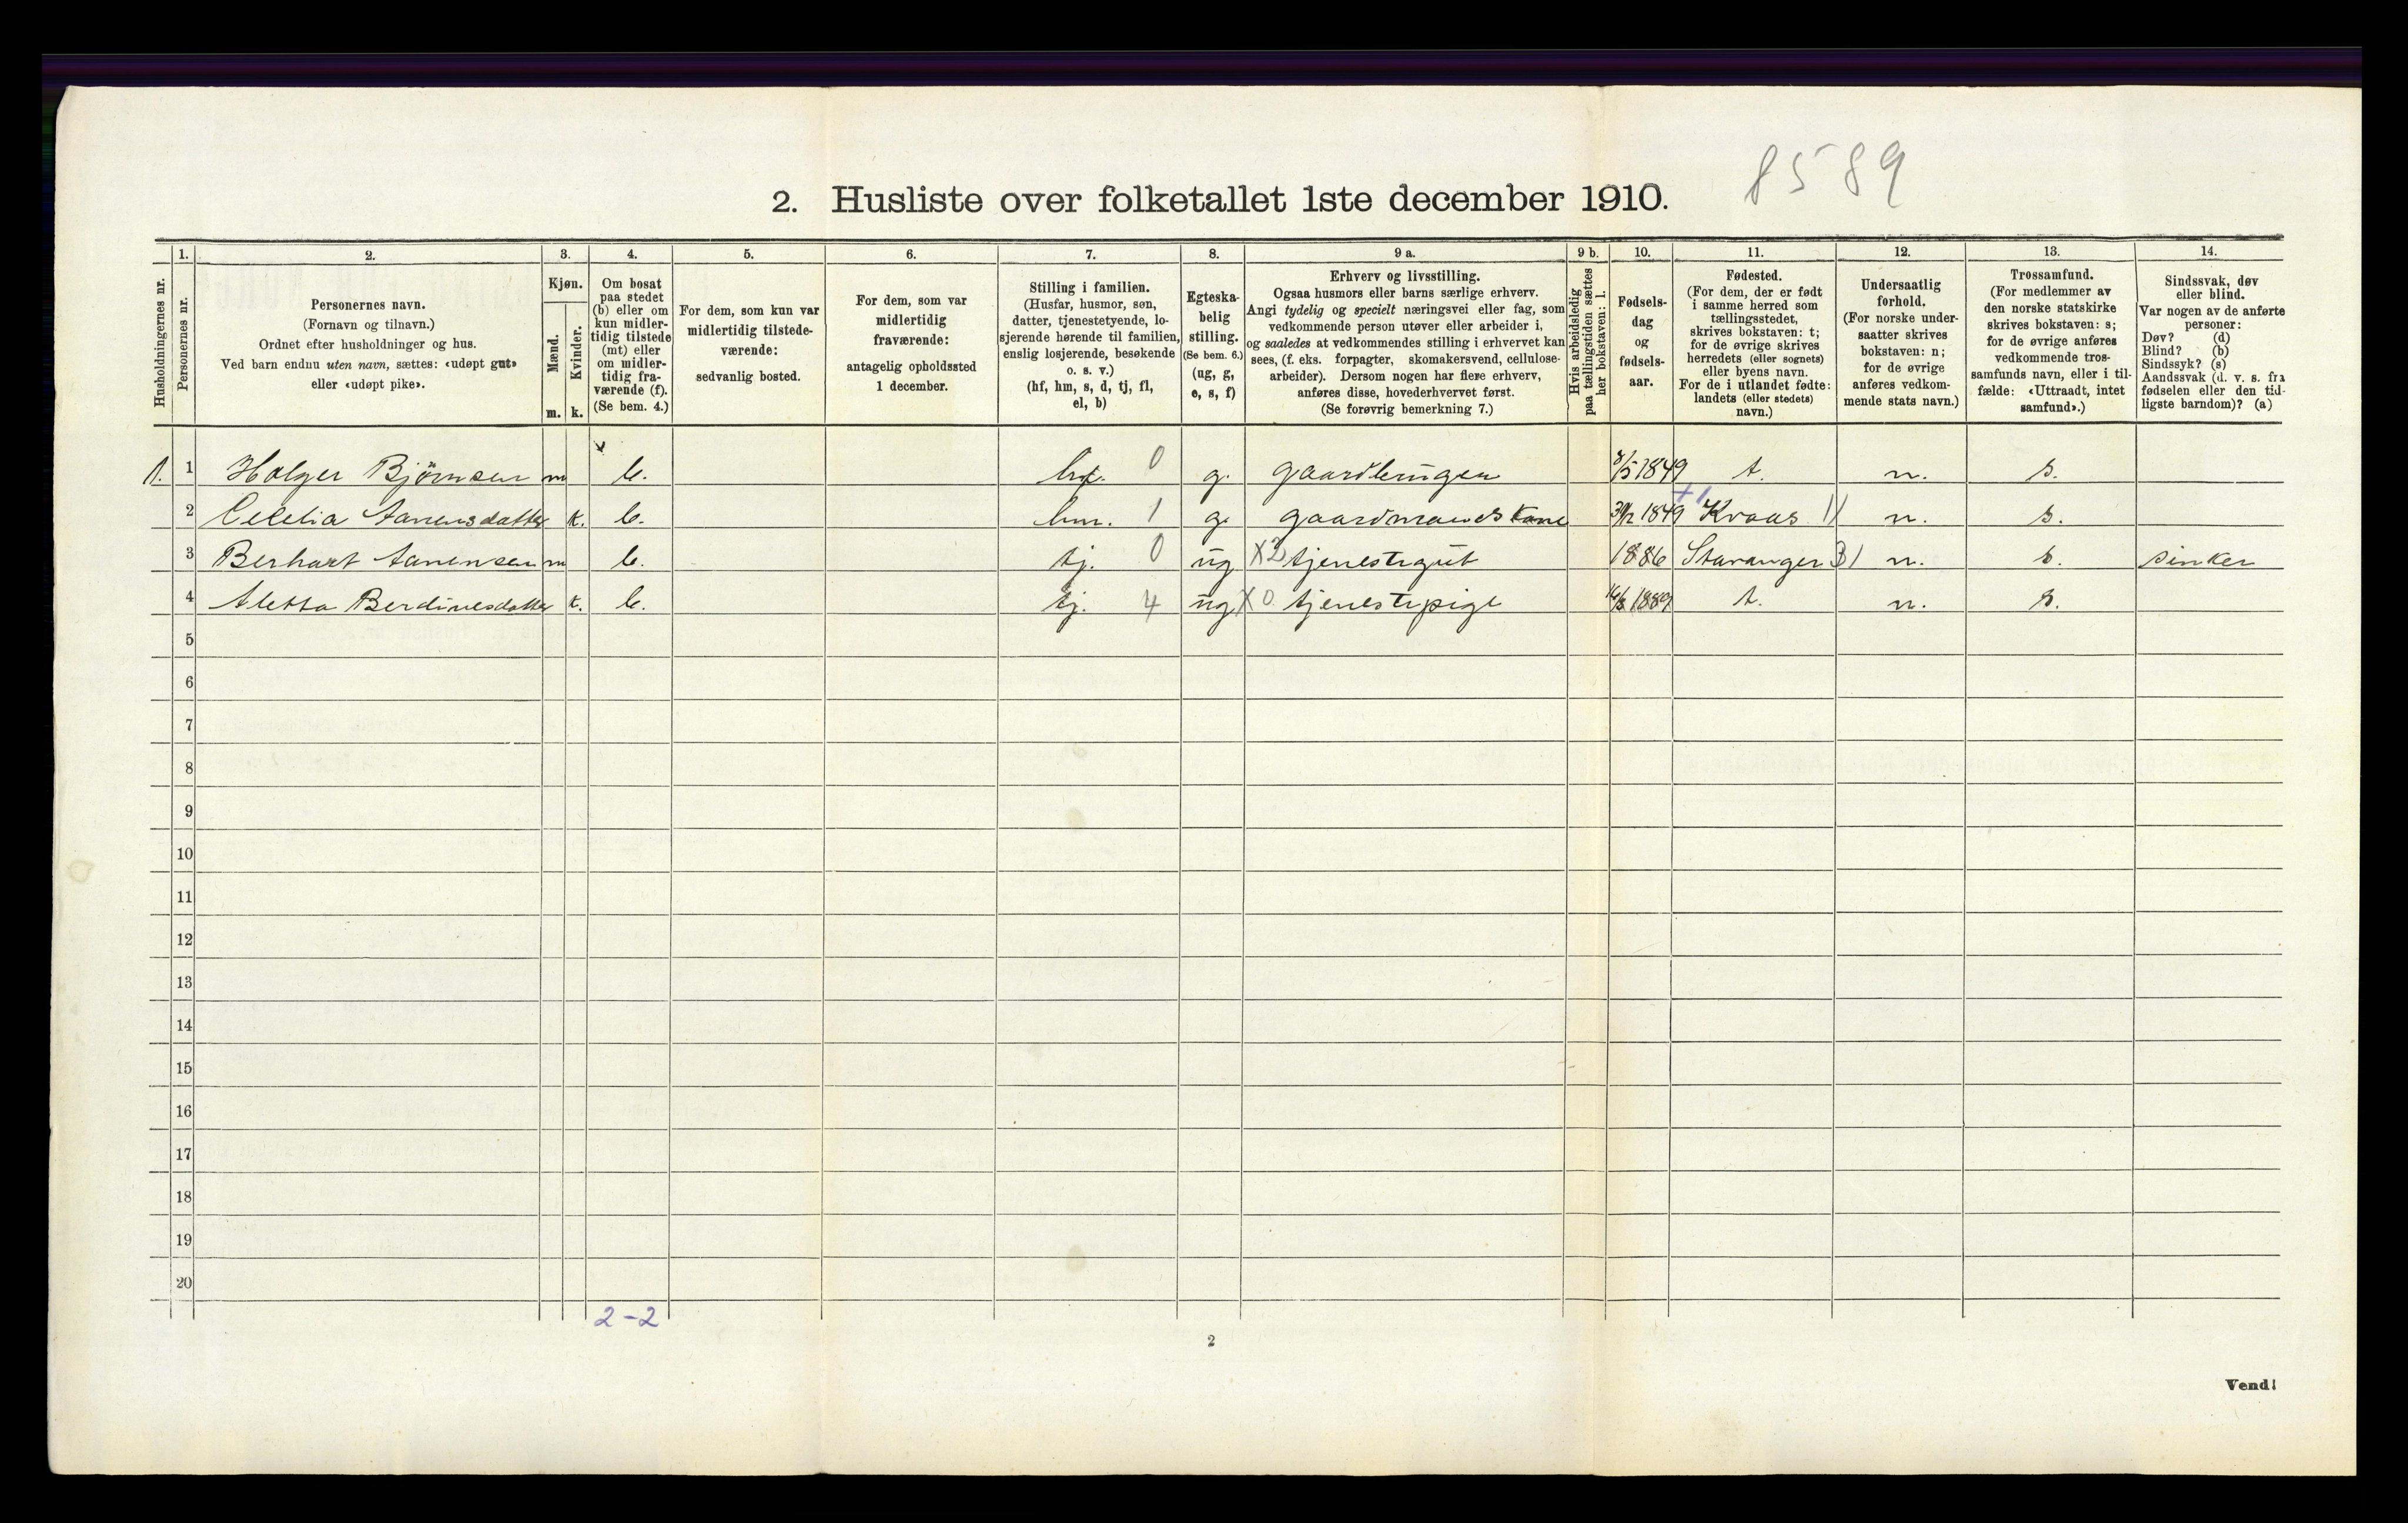 8589
2. Husliste over folketallet 1ste december 1910.
Husholdningernes nr.
1.
Personernes nr.
2.
Personernes navn.
(Fornavn og tilnavn.)
Ordnet efter husholdninger og hus.
Ved barn endnu uten navn, sættes: «udøpt gut»
eller «udøpt pike».
3.
Kjøn.
Mænd.
Kvinder.
m. k.
4.
Om bosat
paa stedet
(b) eller om
kun midler-
tidig tilstede
(mt) eller
om midler-
tidig fra-
værende (f).
(Se bem. 4.)
5.
For dem, som kun var
midlertidig tilstede-
værende:
sedvanlig bosted.
6.
For dem, som var
midlertidig
fraværende:
antagelig opholdssted
1 december.
7.
Stilling i familien.
(Husfar, husmor, søn,
datter, tjenestetyende, lo-
sjerende hørende til familien,
enslig losjerende, besøkende
o. s. v.)
(hf, hm, s, d, tj, fl,
el, b)
8.
Egteska-
belig
stilling.
(Se bem. 6.)
(ug, g,
e, s, f)
9 a.
Erhverv og livsstilling.
Ogsaa husmors eller barns særlige erhverv.
Angi tydelig og specielt næringsvei eller fag, som
vedkommende person utøver eller arbeider i,
og saaledes at vedkommendes stilling i erhvervet kan
sees, (f. eks. forpagter, skomakersvend, cellulose-
arbeider). Dersom nogen har flere erhverv,
anføres disse, hovederhvervet først.
(Se forøvrig bemerkning 7.)
9 b.
Hvis arbeidsledig
paa tællingstiden sættes
her bokstaven: l.
10.
Fødsels-
dag
og
fødsels-
aar.
11.
Fødested.
(For dem, der er født
i samme herred som
tællingsstedet,
skrives bokstaven: t;
for de øvrige skrives
herredets (eller sognets)
eller byens navn.
For de i utlandet fødte:
landets (eller stedets)
navn.)
12.
Undersaatlig
forhold.
(For norske under-
saatter skrives
bokstaven: n;
for de øvrige
anføres vedkom-
mende stats navn.)
13.
Trossamfund.
(For medlemmer av
den norske statskirke
skrives bokstaven: s;
for de øvrige anføres
vedkommende tros-
samfunds navn, eller i til-
fælde: «Uttraadt, intet
samfund».)
14.
Sindssvak, døv
eller blind.
Var nogen av de anførte
personer:
Døv? (d)
Blind? (b)
Sindssyk? (s)
Aandssvak (d. v. s. fra
fødselen eller den tid-
ligste barndom)? (a)
1. 1 Holger Bjørnsen m b. hf. 0 g. gaardbruger 8/5 1849 t. n. s.
2 Celelia Aanensdatter k. b. hm. 1 g. gaardmandskone 1849 +1 Kvaas 11 n. s.
3 Berhart Aanensen m b. tj. 0 ug X2 tjenestegut 1886 Stavanger 31 n. s. sinker
4 Aletta Berdinesdatter k. b. tj. 4 ug X0 tjenestepige 16/8 1889 t. n. s.
5
6
7
8
9
10
11
12
13
14
15
16
17
18
19
20
2-2
2
Vend!